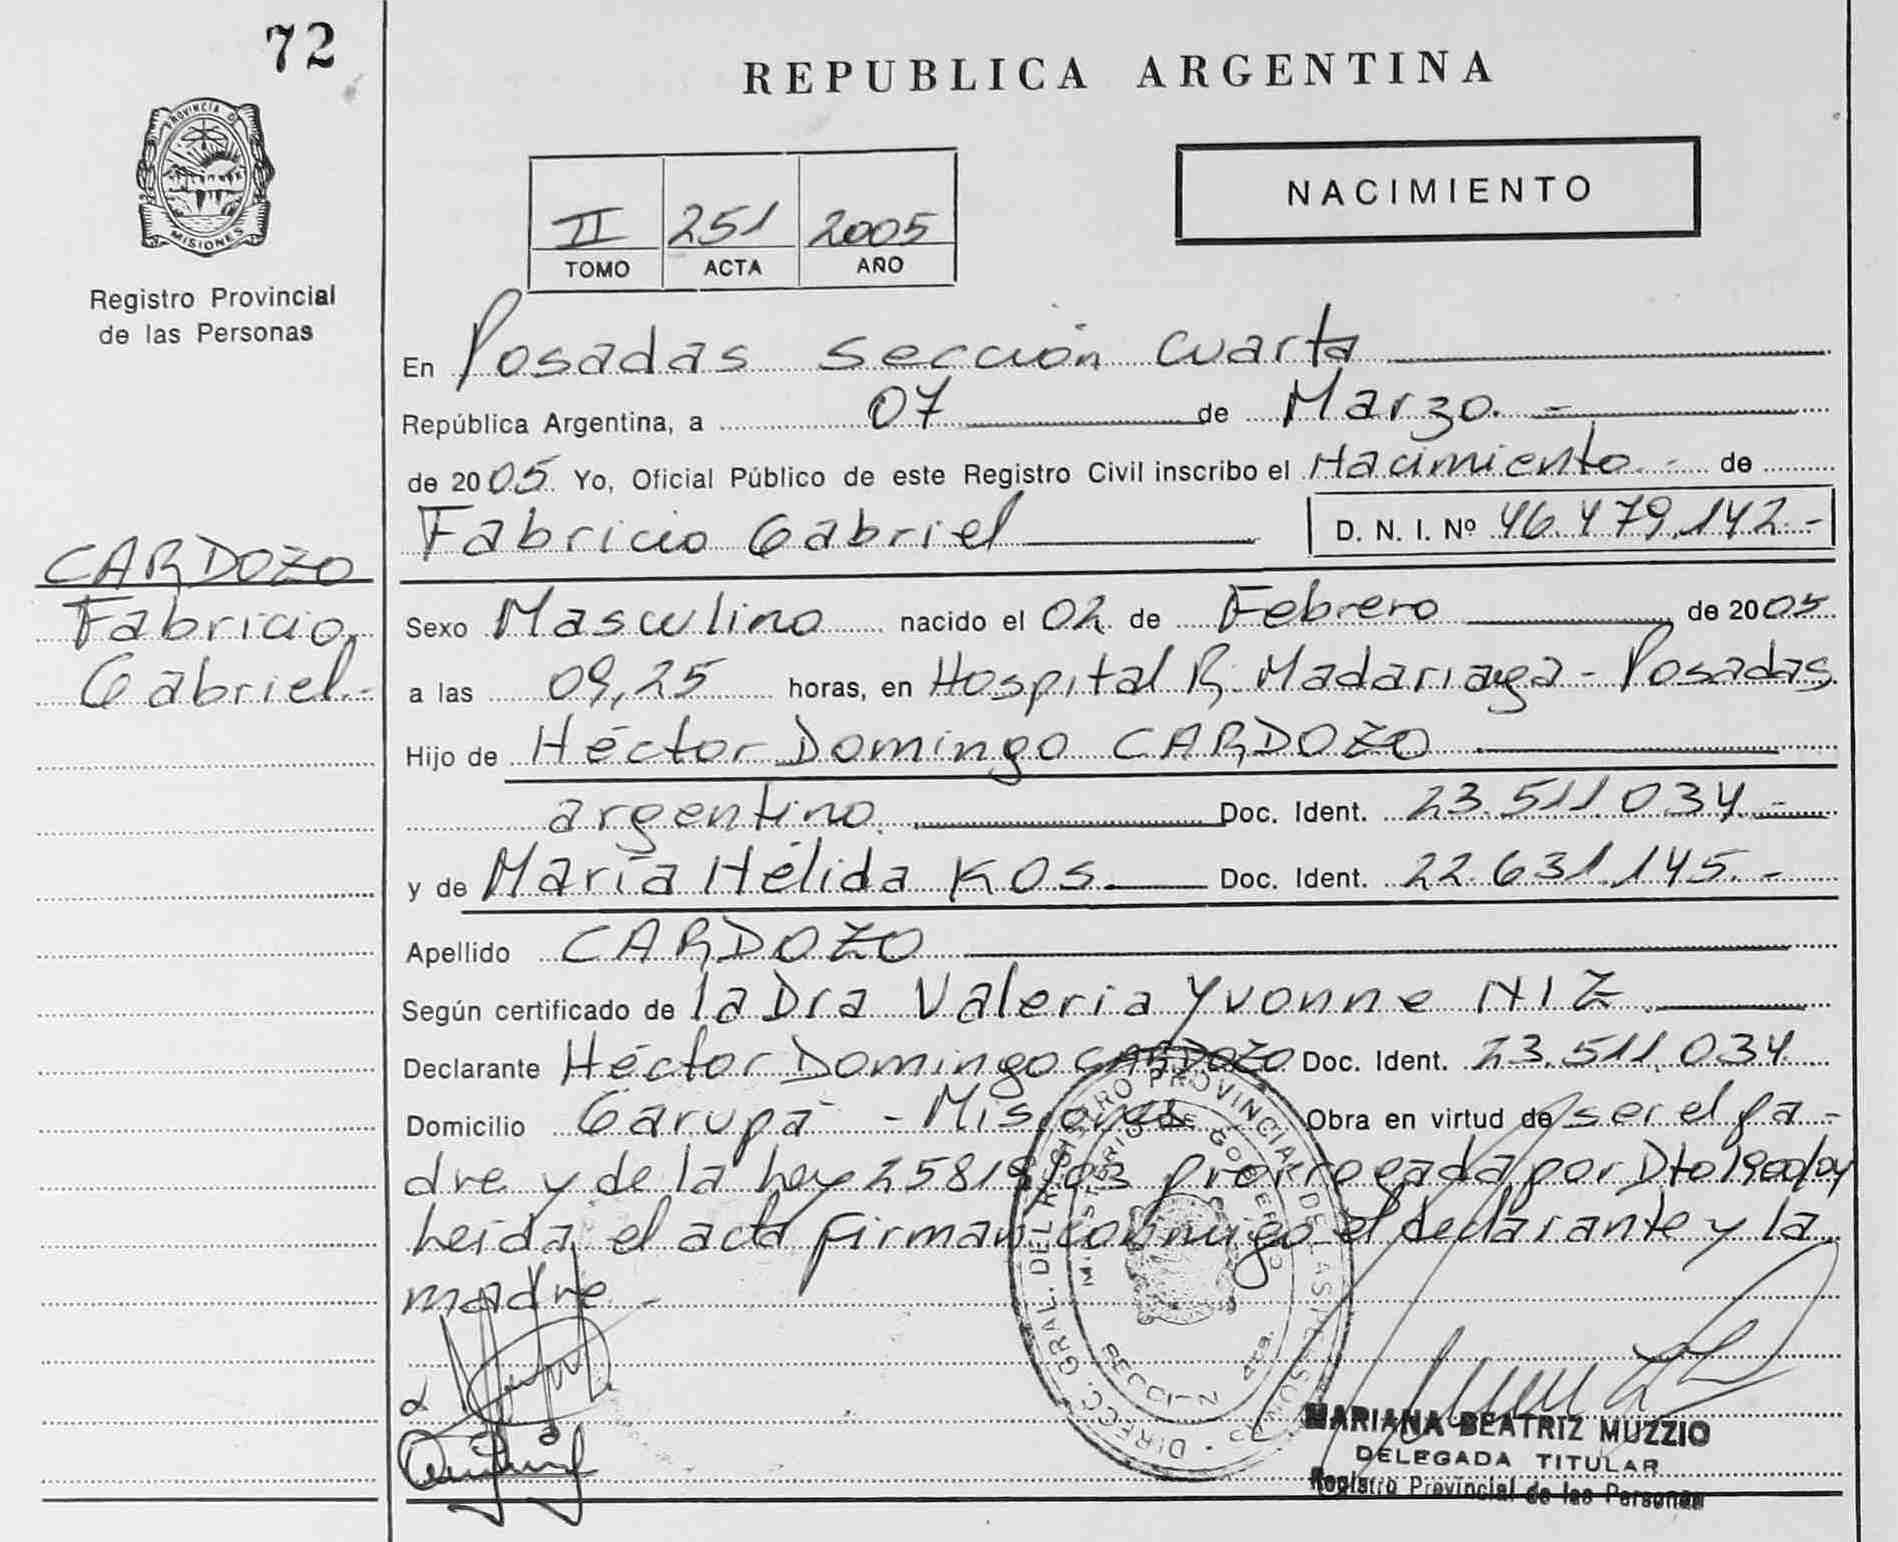 72
REPUBLICA ARGENTINA
PROVINCIA D
MISIONES
Registro Provincial
de las Personas
II 251 2005
TOMO ACTA AÑO
NACIMIENTO
En Posadas sección cuarta
República Argentina, a 07 de Marzo.-
de 2005 Yo, Oficial Público de este Registro Civil inscribo el Nacimiento.- de
Fabricio Gabriel D. N. I. Nº 46.479.142.-
CARDOZO
Fabricio
Gabriel.-
Sexo Masculino nacido el 02 de Febrero de 2005
a las 09,25 horas, en Hospital R. Madariaga - Posadas
Hijo de Héctor Domingo CARDOZO
argentino. Doc. Ident. 23.511.034.-
y de María Hélida KOS Doc. Ident. 22.631.145.-
Apellido CARDOZO
Según certificado de la Dra Valeria Yvonne NIZ
Declarante Héctor Domingo CARDOZO Doc. Ident. 23.511.034
Domicilio Garupá - Misiones Obra en virtud de ser el pa-
dre y de la Ley 25819/03 prorrogada por Dto 1900/04
Leida el acta firman conmigo el declarante y la
madre.-
DIRECC. GRAL. DEL REGISTRO PROVINCIAL DE LAS PERSONAS
MINISTERIO DE GOBIERNO
MISIONES
MARIANA BEATRIZ MUZZIO
DELEGADA TITULAR
Registro Provincial de las Personas